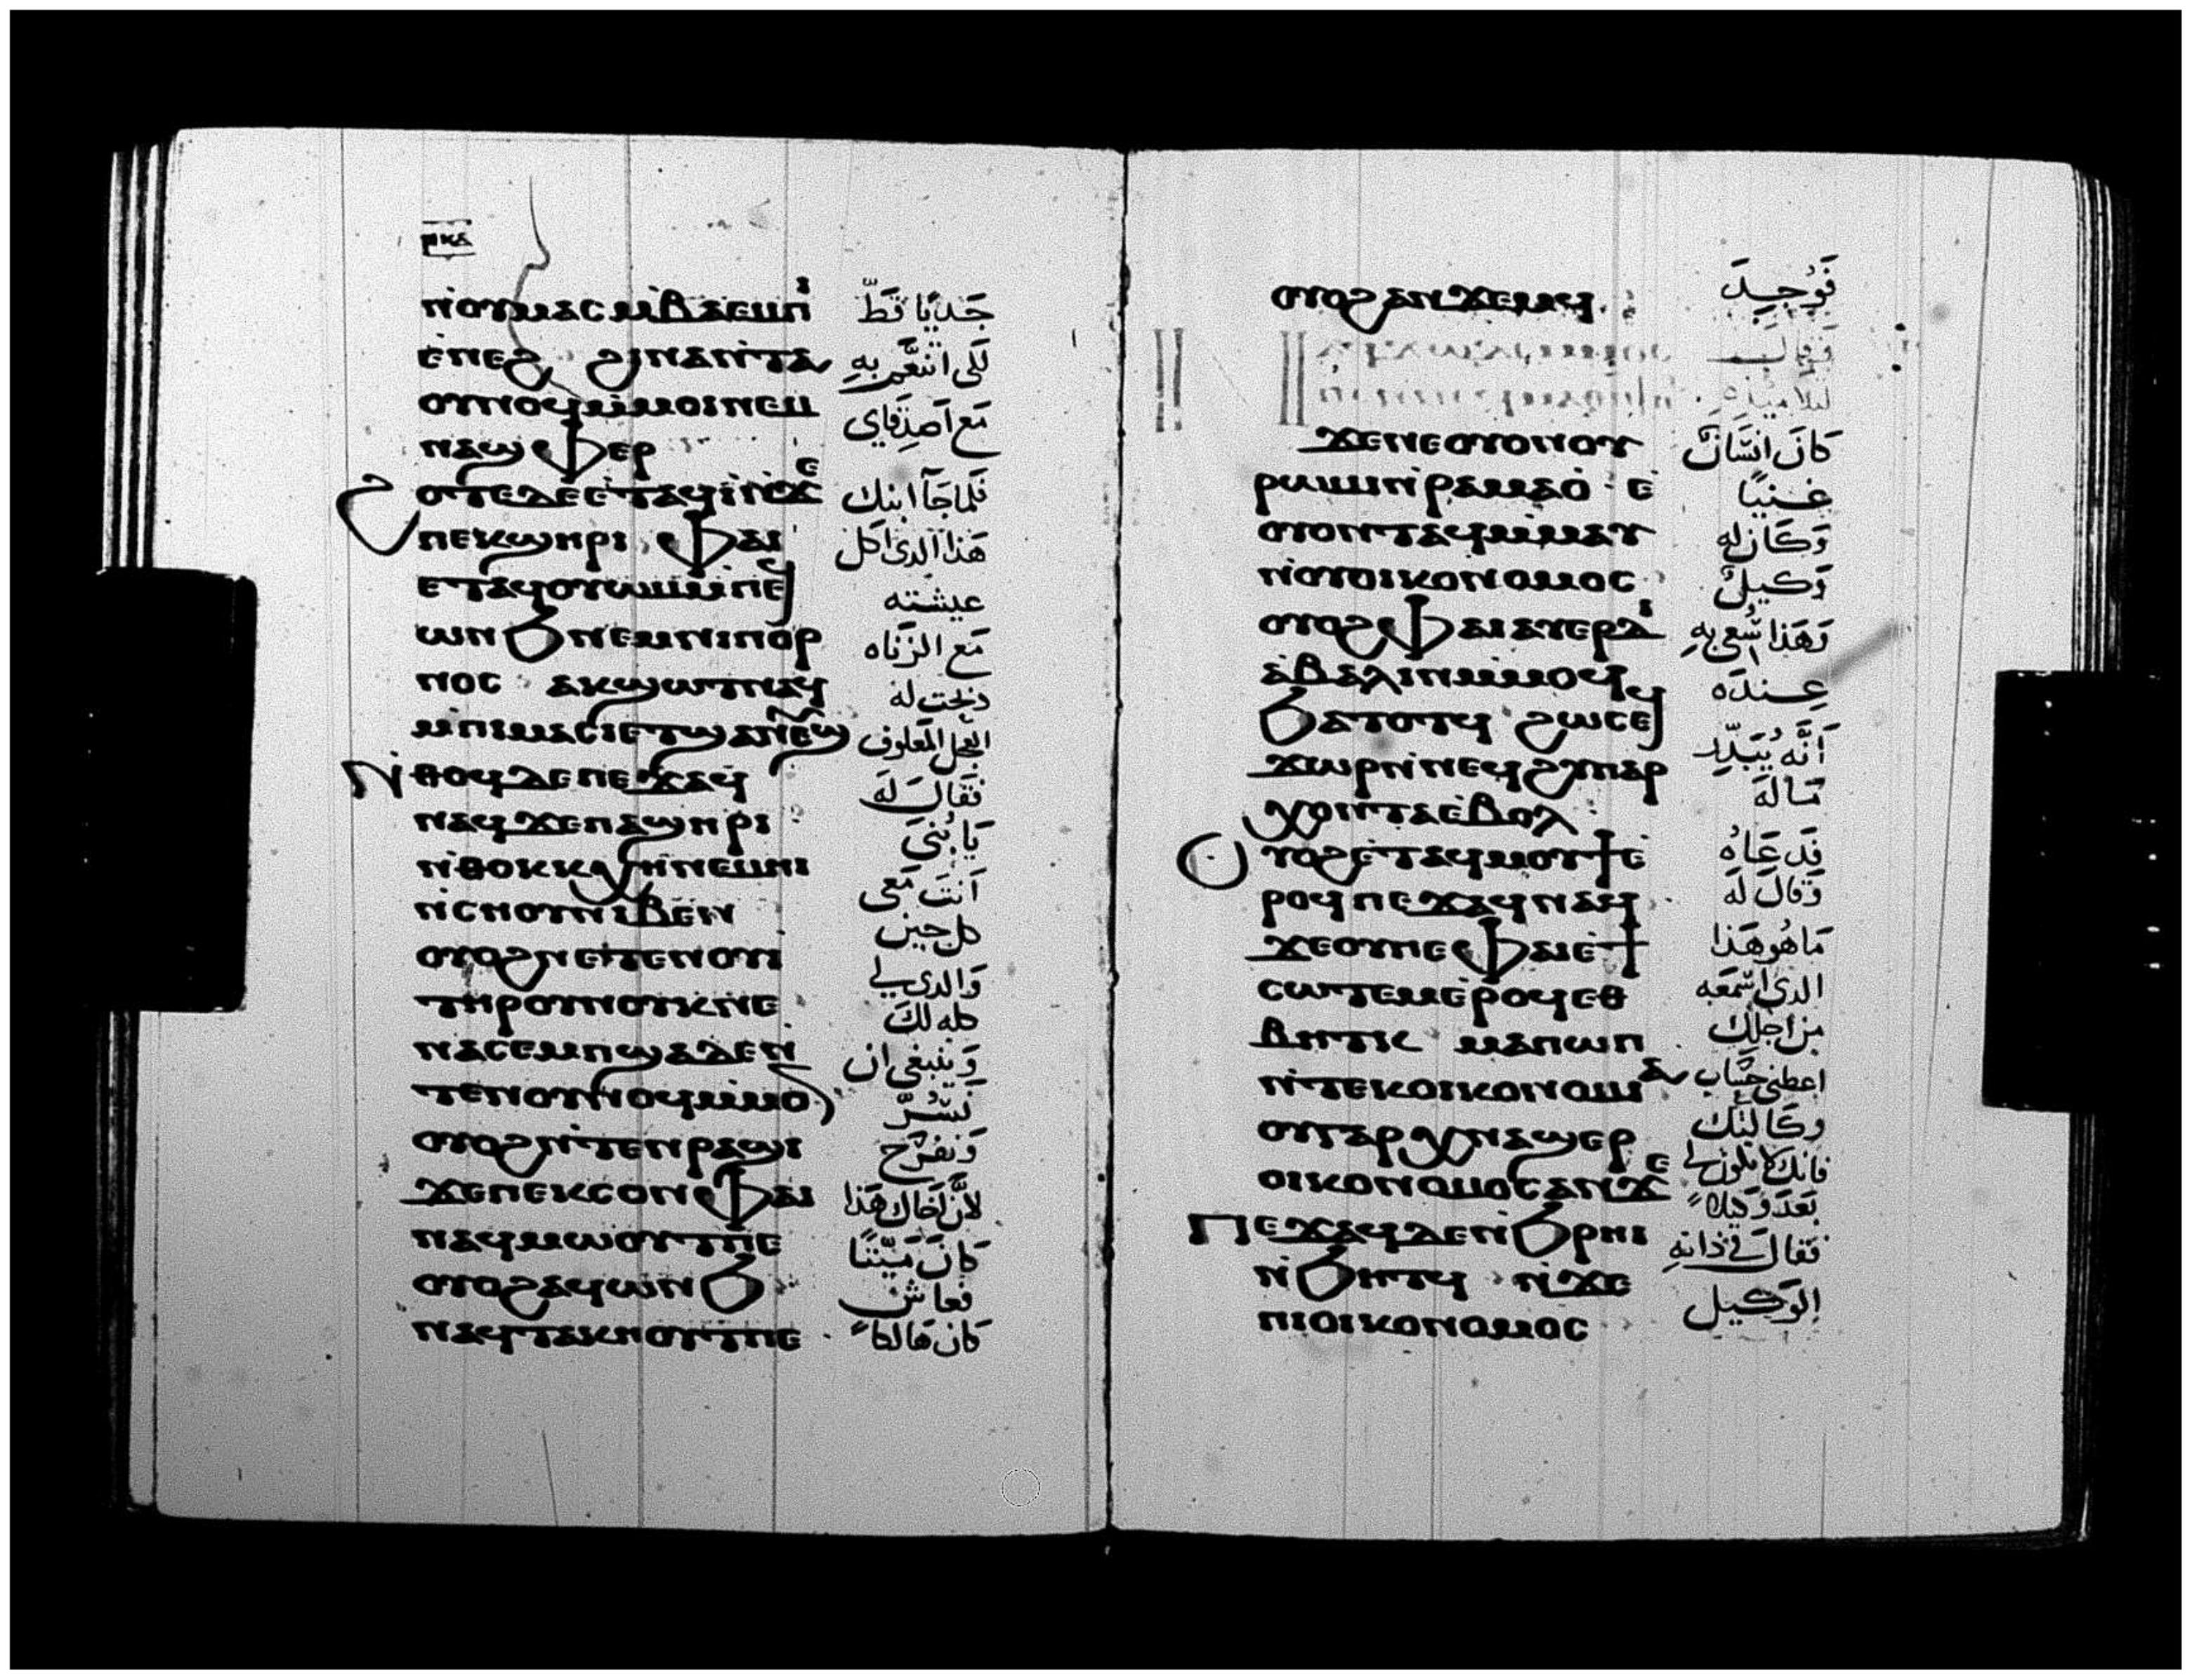 ⲣⲕⲇ
ⲛ̀ⲟⲩⲙⲁⲥⲙ̀ⲃⲁⲉⲙⲡⲓ
جَديًا قَطّ
ⲉⲛⲉϩ ϩⲓⲛⲁⲛ̀ⲧⲁ
لَكي اتنعَّم بهِ
ⲟⲩⲛⲟϥⲙ̀ⲙⲟⲓⲛⲉⲙ
مَع اَصدِقاي
ⲛⲁϣⲫⲏⲣ
ϩⲟⲧⲉⲇⲉⲉⲧⲁϥⲓ̀ⲛ̀ϫⲉ
فَلما جَآ ابنك
ⲡⲉⲕϣⲏⲣⲓ ⲫⲁⲓ
هَذا الدى اكل
ⲉⲧⲁϥⲟⲩⲱⲙⲙ̀ⲡⲉϥ
عيشته
ⲱⲛϧⲛⲉⲙⲛⲓⲡⲟⲣ
مَع الزنَاه
ⲛⲟⲥ ⲁⲕϣⲱⲧⲛⲁϥ
دبحت له
ⲙ̀ⲡⲓⲙⲁⲥⲓⲉⲧϣⲁⲛⲉⲩϣ
العجل المَعلوف
ⲛ̀ⲑⲟϥⲇⲉⲡⲉϫⲁϥ
فَقَالَ لَه
ⲛⲁϥϫⲉⲡⲁϣⲏⲣⲓ
يَا بُنىَ
ⲛ̀ⲑⲟⲕⲕⲭⲏⲛⲉⲙⲏⲓ
اَنتَ مَعى
ⲛ̀ⲥⲏⲟⲩⲛⲓⲃⲉⲛ
كل حين
ⲟⲩⲟϩⲛⲉⲧⲉⲛⲟⲩⲓ
وَالدى لي
ⲧⲏⲣⲟⲩⲛⲟⲩⲕⲛⲉ
كله لكَ
ⲛⲁⲥⲉⲙⲡϣⲁⲇⲉⲛ
وَينبغى ان
ⲧⲉⲛⲟⲩⲛⲟϥⲙ̀ⲙⲟⲛ
نَسُرّ
ⲟⲩⲟϩⲛ̀ⲧⲉⲛⲣⲁϣⲓ
وَنفرَح
ϫⲉⲡⲉⲕⲥⲟⲛⲫⲁⲓ
لانَّ اَخاك هَذا
ⲛⲁϥⲙⲱⲟⲩⲧⲡⲉ
كانَ مَيّتًا
ⲟⲩⲟϩⲁϥⲱⲛϧ
فعاش
ⲛⲁϥⲧⲁⲕⲏⲟⲩⲧⲡⲉ
كَان هَالكًا
ⲟⲩⲟϩⲁⲛϫⲉⲙϥ
فَوُجِدَ
فقالَ
لتلاميذه
ϫⲉⲛⲉⲟⲩⲟⲛⲟⲩ
كَانَ انسَانٌ
ⲣⲱⲙⲓⲛ̀ⲣⲁⲙⲁⲟ̀ ⲉ̀
غَنيًا
ⲟⲩⲟⲛⲧⲁϥⲙ̀ⲙⲁⲩ
وَكَان له
ⲛ̀ⲟⲩⲟⲓⲕⲟⲛⲟⲙⲟⲥ
وَكيلٌ
ⲟⲩⲟϩⲫⲁⲓⲁⲩⲉⲣⲇⲓ
وَهَذا سُعى بهِ
ⲁ̀ⲃⲁⲗⲓⲛⲙ̀ⲙⲟϥ
عِندَه
ϧⲁⲧⲟⲧϥ ϩⲱⲥⲉϥ
اَنَّه يُبَدّد
ϫⲱⲣⲛ̀ⲛⲉϥϩⲩⲡⲁⲣ
مَالهَ
ⲭⲟⲛⲧⲁⲉ̀ⲃⲟⲗ
ⲟⲩⲟϩⲉ̀ⲧⲁϥⲙⲟⲩϯⲉ̀
فَدعَاهُ
ⲣⲟϥⲡⲉϫⲁϥⲛⲁϥ
وَقالَ لَه
ϫⲉⲟⲩⲡⲉⲫⲁⲓⲉϯ
مَا هُو هَذا
ⲥⲱⲧⲉⲙⲉ̀ⲣⲟϥⲉⲑ
الدى اسْمَعَه
ⲃⲏⲧⲕ ⲙⲁⲡⲱⲡ
من اَجلك
ⲛ̀ⲧⲉⲕⲟⲓⲕⲟⲛⲟⲙⲓⲁ
اعطنى حِسَاب
وكَالتك
ⲟⲩⲅⲁⲣⲭⲛⲁϣⲉⲣ
فانك لا تكون لي
ⲟⲓⲕⲟⲛⲟⲙⲟⲥⲁⲛϫⲉ
بَعدَ وَكيلاً
ⲡⲉϫⲁϥⲇⲉⲛ̀ϧⲣⲏⲓ
فَقالَ في ذاتهِ
ⲛ̀ϧⲏⲧϥ ⲛ̀ϫⲉ
الوَكيل
ⲡⲓⲟⲓⲕⲟⲛⲟⲙⲟⲥ